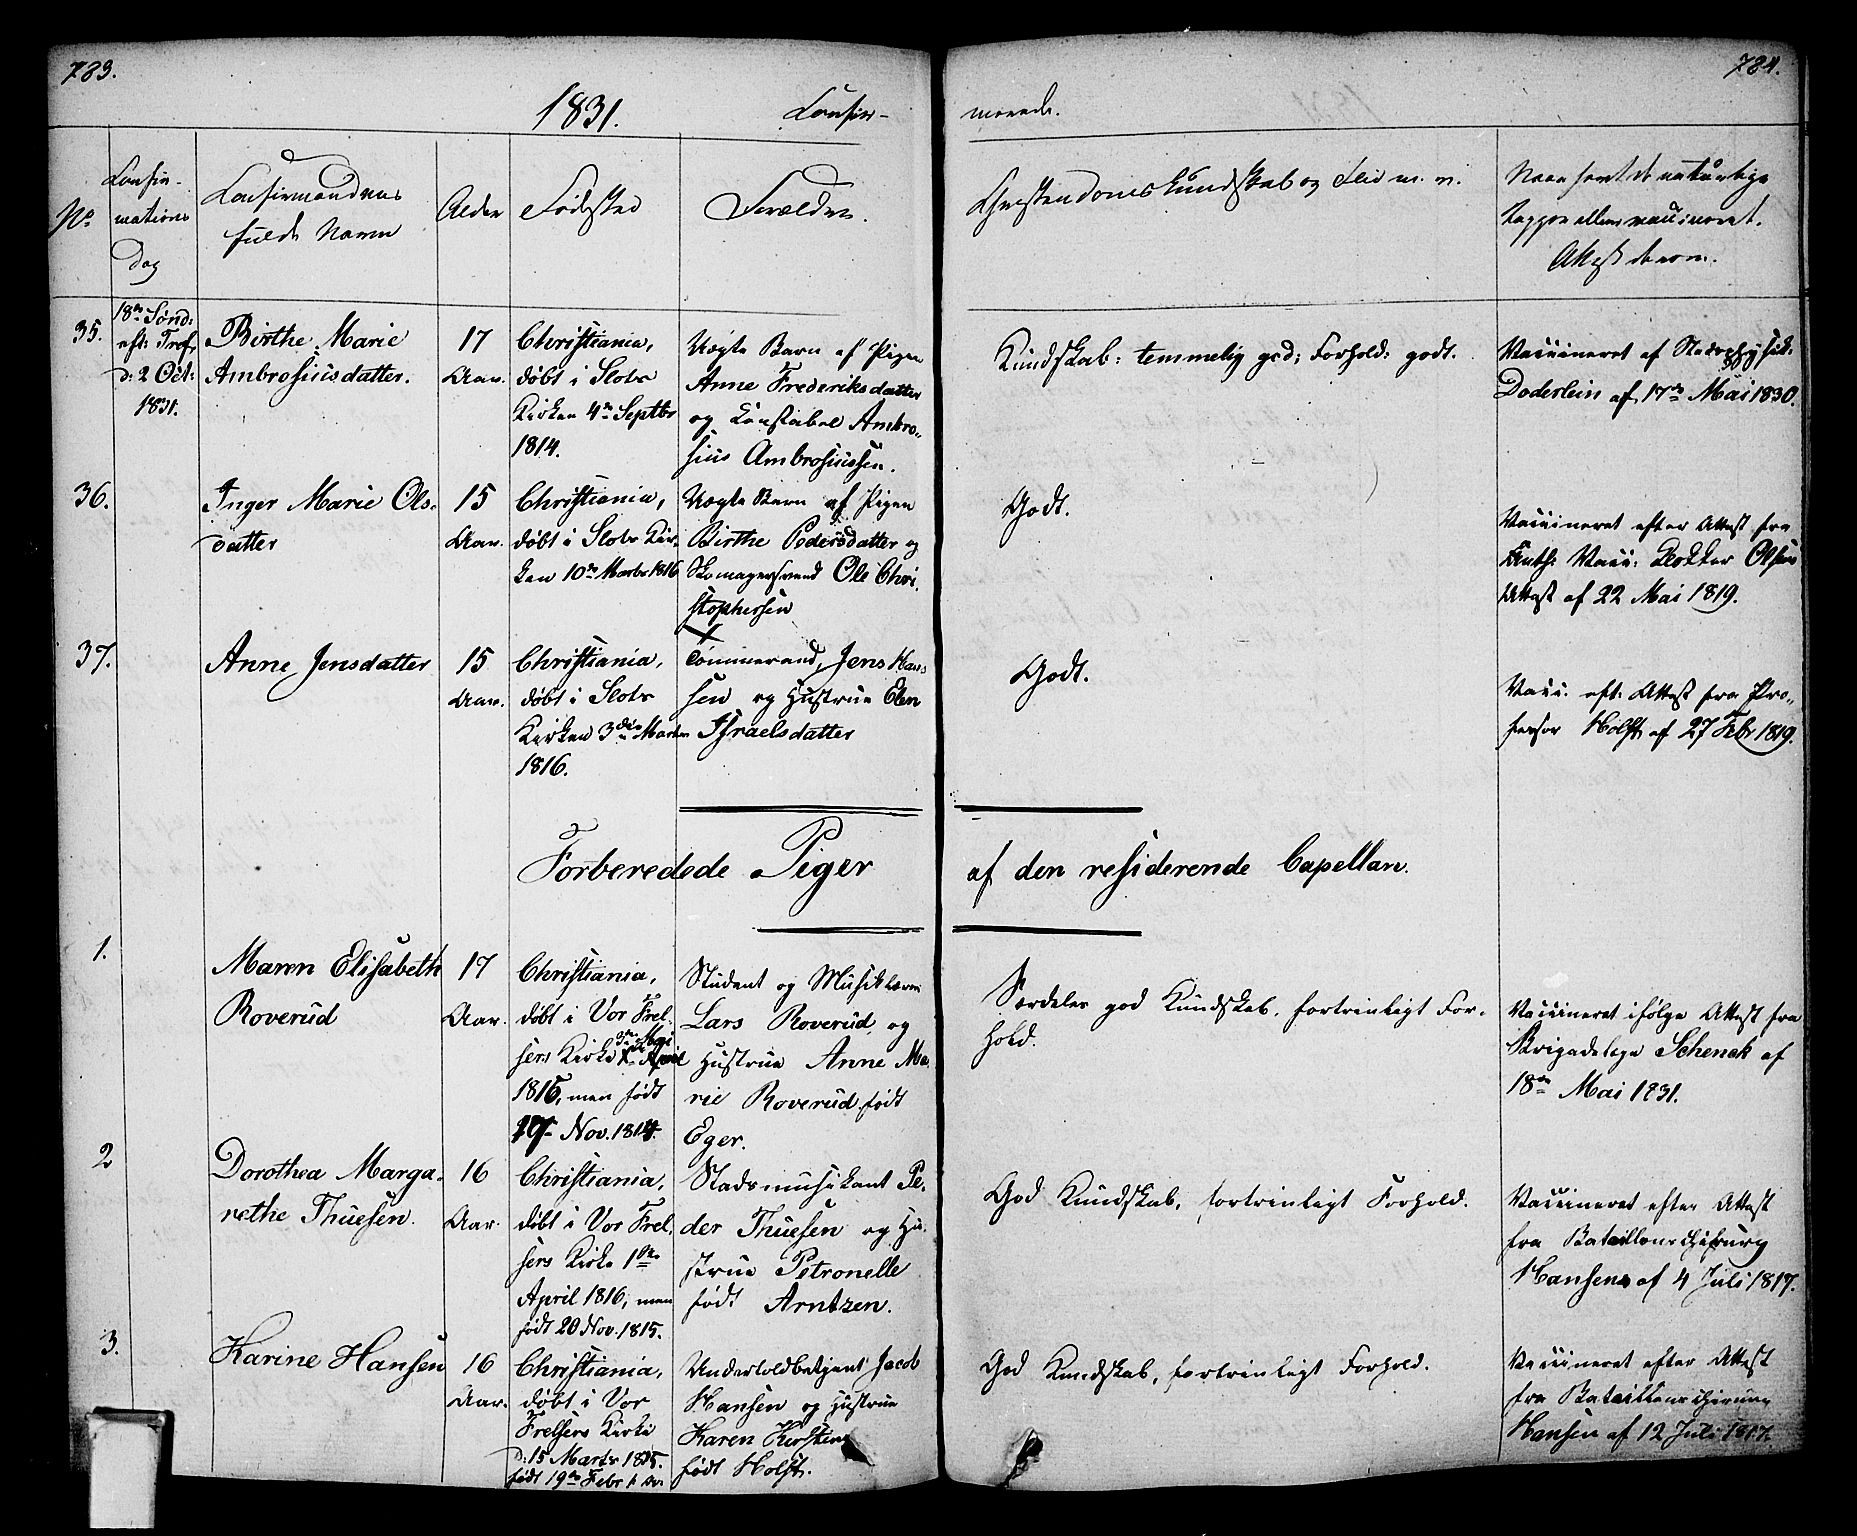 783.
784.
1831.
Confir-
merede.
No.
Confir-
mations
Dag
Confirmandens
fulde Navn
Alder
Fødested
Forældre.
Christendomskundskab og Flid m. v.
Naar havt de naturlige
Kopper eller vaccineret.
Attest derom.
35.
18de Sønd:
eft: Tref.
d: 2 Oct:
1831.
Birthe Marie
Ambrosiusdatter.
17
Aar.
Christiania,
døbt i Slots
Kirken 4de Septbr
1814.
Uægte Barn af Pigen
Anne Frederiksdatter
og Constabel Ambro-
sius Ambrosiussen.
Kundskab: temmelig god; Forhold: godt.
Vaccineret af Stadsphysik.
Doderlein af 17de Mai 1830.
36.
Inger Marie Ols-
datter
15
Aar.
Christiania,
døbt i Slots Kir-
ken 10de Marts 1816
Uægte Barn af Pigen
Birthe Pedersdatter og
Skomagersvend Ole Chri-
stophersen
Godt.
Vaccineret efter Attest fra
Auth: Vacc: Klokker Olsens
Attest af 22 Mai 1819.
37.
Anne Jensdatter
15
Aar.
Christiania,
døbt i Slots
Kirken 3die Marts
1816.
Tømmermand, Jens Han-
sen og Hustrue Elen
Israelsdatter
Godt.
Vacc. eft: Attest fra Pro-
fessor Holst af 27 Febr 1819.
Forberedede Piger
af den residerende Capellan.
1.
Maren Elisabeth
Roverud
17
Aar.
Christiania,
døbt i Vor Frel-
sers Kirke 3die Mai
1815, men født
Nov. 1814.
Student og Musiklærer
Lars Roverud, og
Hustrue Anne Ma-
rie Roverud født
Eger.
Særdeles god Kundskab, fortrinligt For-
hold.
Vaccineret ifølge Attest fra
Brigadelæge Schenck af
18de Mai 1831.
2
Dorothea Marga-
rethe Thuesen.
16
Aar.
Christiania,
døbt i Vor Frel-
sers Kirke 1ste
April 1816, men
født 20 Nov. 1815.
Stadsmusikant Pe-
der Thuesen og Hu-
strue Petronelle
født Arntzen.
God Kundskab, fortrinligt Forhold.
Vaccineret efter Attest
fra Bataillonschirurg
Hansen af 4 Juli 1817.
3.
Karine Hansen
16
Aar.
Christiania,
døbt i Vor
Frelsers Kirke
d: 15 Marts 1815.
født 19de Febr s. A.
Undertoldbetjent Jacob
Hansen og Hustrue
Karen Kirstine
født Holst.
God Kundskab, fortrinligt Forhold.
Vaccineret efter Attest
fra Bataillonschirurg
Hansen af 12 Juli 1817.